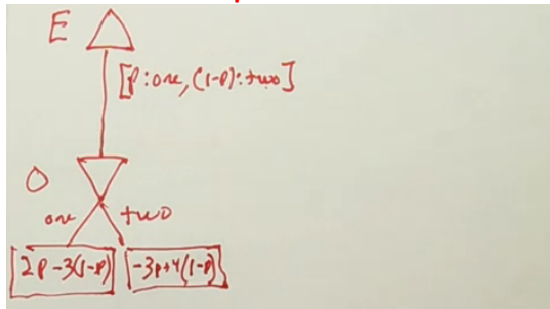 E
[p:one, (1-p):two]
O
one two
2p-3(1-p) -3p+4(1-p)